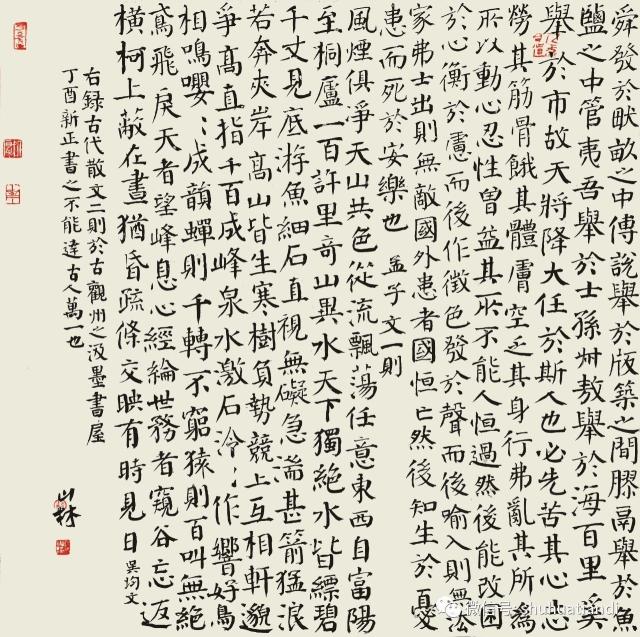 舜發於畎畝之中傅說舉於版築之間膠鬲舉於魚
鹽之中管夷吾舉於士孫叔敖舉於海百里奚
舉於市故天將降大任於斯人也必先苦其心志
勞其筋骨餓其體膚空乏其身行弗亂其所為
所以動心忍性曾益其所不能人恒過然後能改困
於心衡於慮而後作徵色發於聲而後喻入則無法
家弗士出則無敵國外患者國恒亡然後知生於憂
患而死於安樂也 孟子文一則
風煙俱爭天山共色從流飄蕩任意東西自富陽
至桐廬一百許里奇山異水天下獨絕水皆縹碧
千丈見底游魚細石直視無礙急湍甚箭猛浪
若奔夾岸高山皆生寒樹負勢競上互相軒邈
爭高直指千百成峰泉水激石泠：作響好鳥
相鳴嚶：成韻蟬則千轉不窮猿則百叫無絕
鳶飛戾天者望峰息心經綸世務者窺谷忘返
橫柯上蔽在晝猶昏疏條交映有時見日 吴均文
右録古代散文二則於古觀州之汲墨書屋
丁酉新正書之不能達古人萬一也
微信号: shuhuatiandi